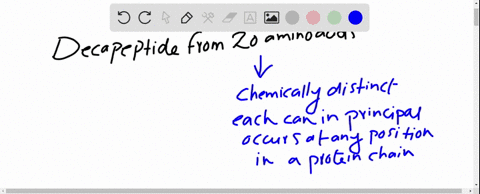 Decapeptide from 20 aminoacids
↓
chemically distinct
each can in principal
occurs at any position
in a protein chain